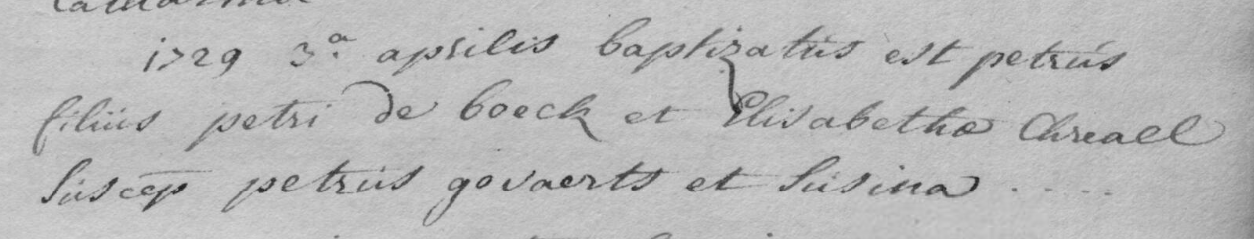 1729 3a. aprilis baptizatus est petrus
filius petri de boeck et Elisabetha Chreael
Suscep petrus govaerts et Susina .....